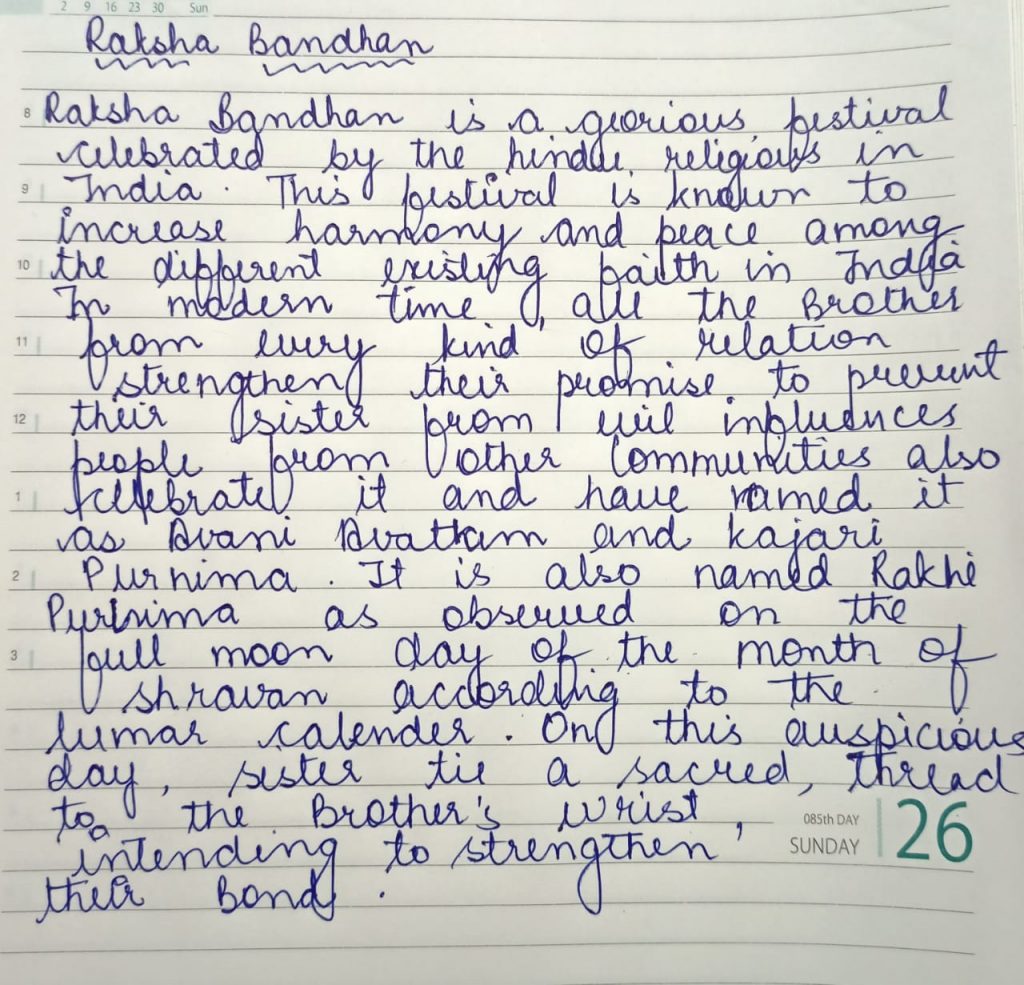 2 9 16 23 30 Sun
Raksha Bandhan
8 Raksha Bandhan is a georious festival
celebrated by the hindu religious in
9 India. This festival is known to
increase harmony and peace among
10 the different existing faith in India
In modern time, all the Brother
11 from every kind of relation
strengthen their promise to prevent
12 their sister from evil influences
people from other communities also
1 celebrate it and have named it
as Avani Avattam and kajari
2 Purnima. It is also named Rakhi
Purinima as observed on the
3 full moon day of the month of
shravan according to the
lumar calender. On this auspicious
day, sister tie a sacred, thread
to a the Brother's wrist,
intending to strengthen
their Bond.
085th DAY
SUNDAY 26